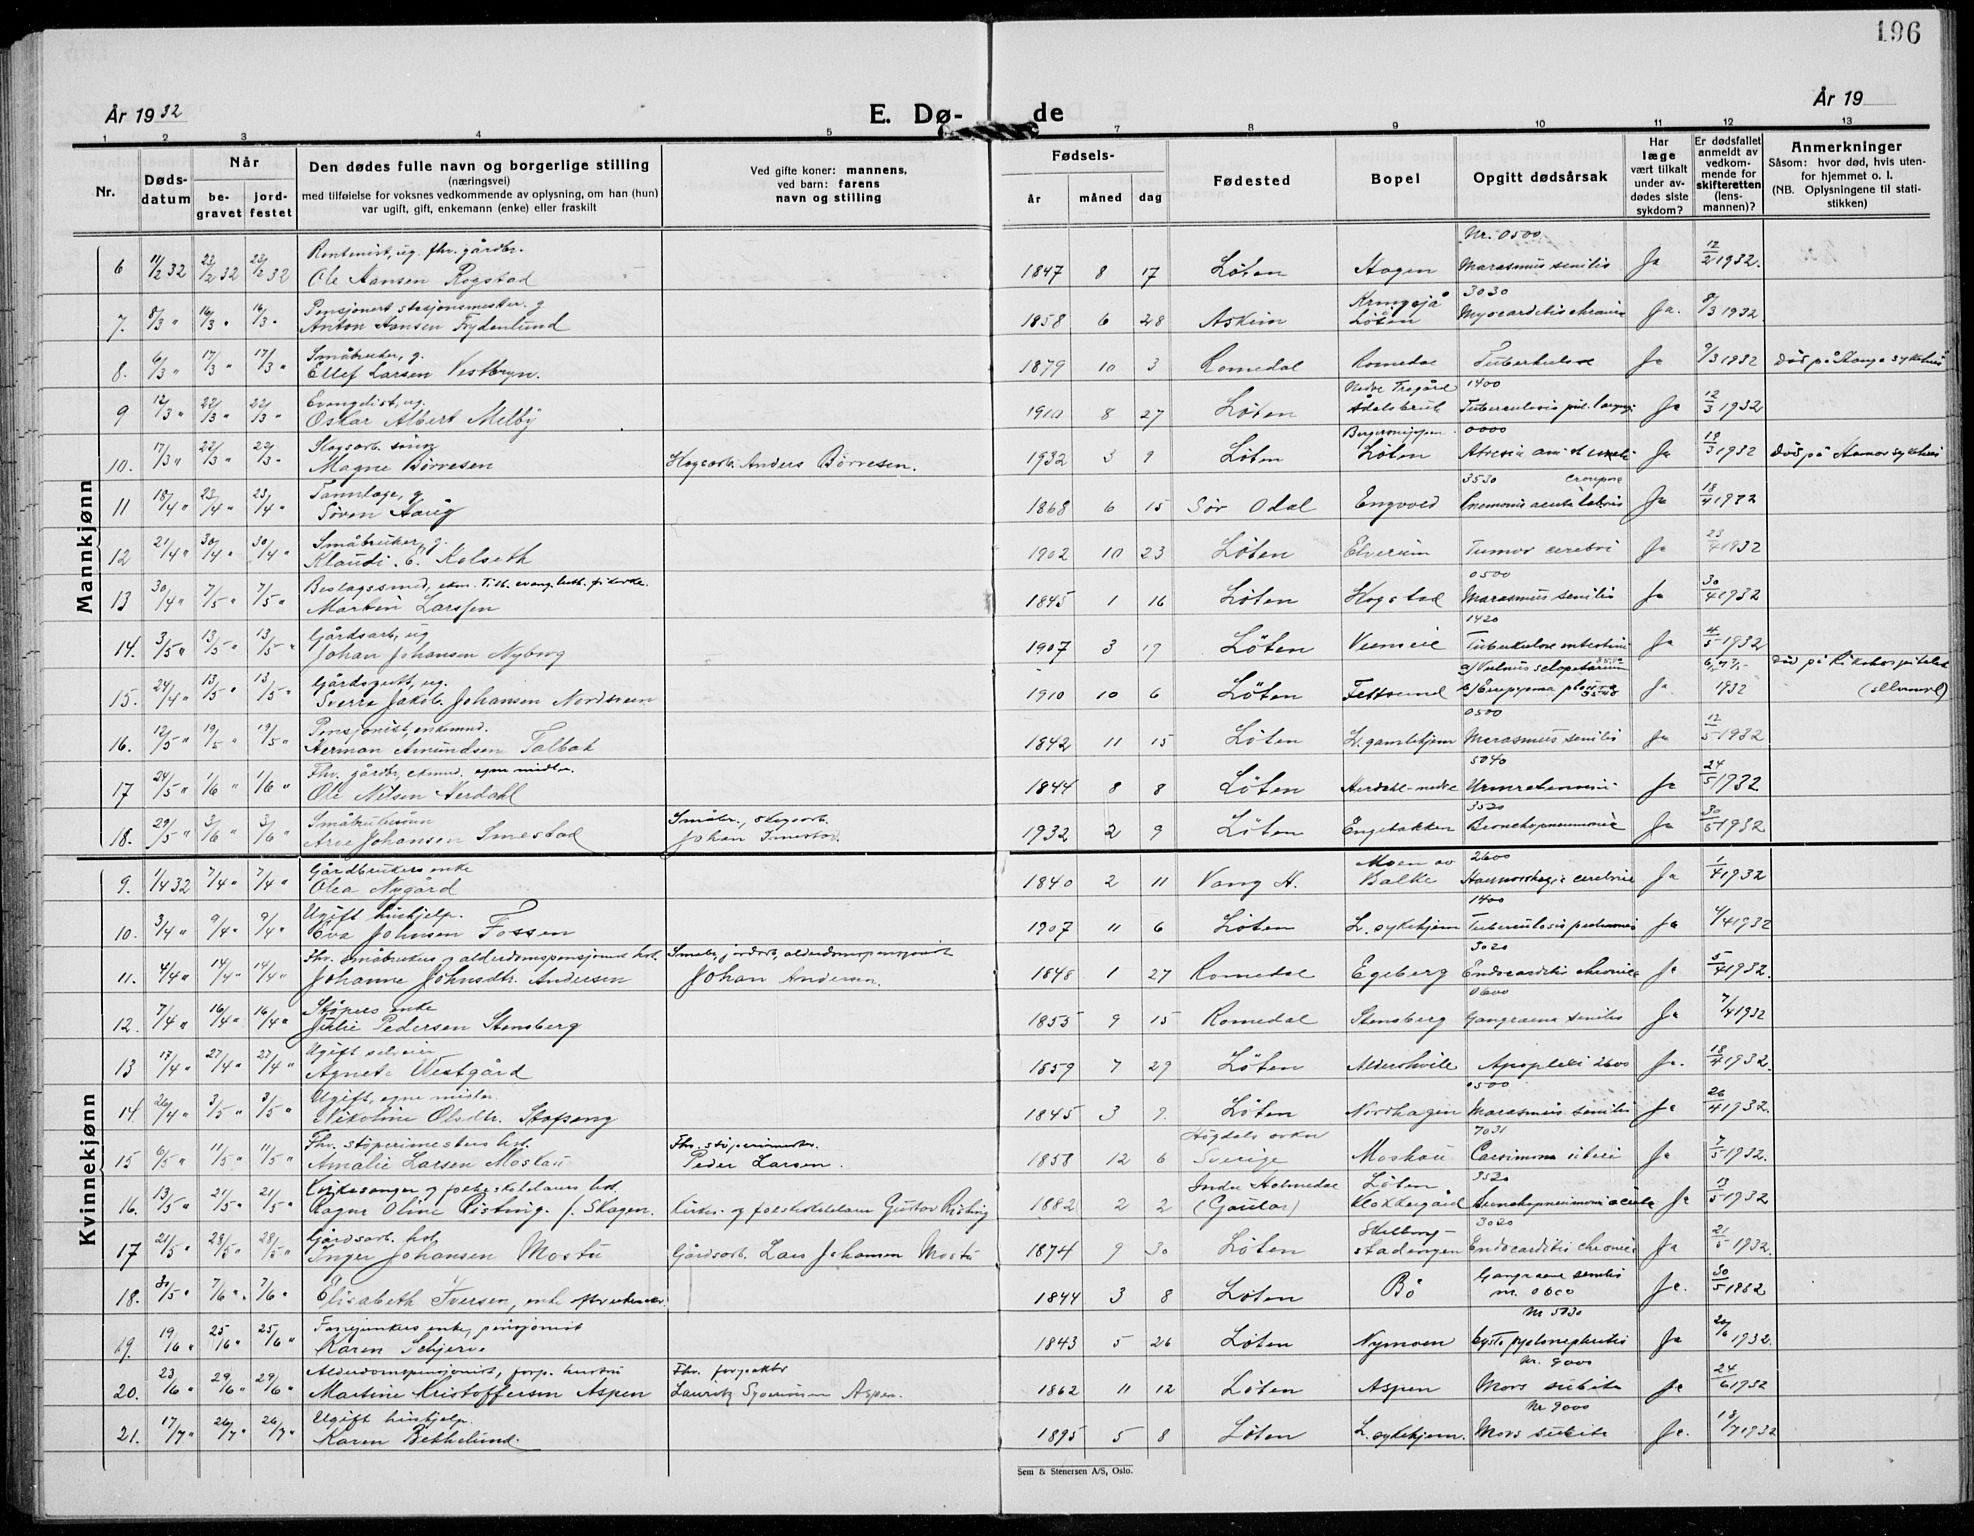 196
År 1932 E. Dø- de År 19
1 2 3 4 5 7 8 9 10 11 12 13
Nr. Døds-datum Når be-gravet jord-festet Den dødes fulle navn og borgerlige stilling (næringsvei) med tilføielse for voksnes vedkommende av oplysning, om han (hun) var ugift, gift, enkemann (enke) eller fraskilt Ved gifte koner: mannens, ved barn: farens navn og stilling Fødsels- år måned dag Fødested Bopel Opgitt dødsårsak Har læge vært tilkalt under av-dødes siste sykdom? Er dødsfallet anmeldt av vedkom-mende for skifteretten (lens-mannen)? Anmerkninger Såsom: hvor død, hvis uten-for hjemmet o. l. (NB. Oplysningene til stati-stikken)
Mannkjønn
Rentenist, ug. fhv. gårdbr. Nr. 0500
6 11/2 32 23/2 32 23/2 32 Ole Hansen Rogstad 1847 8 17 Løten Hagen Marasmus senilis Ja 12/2 1932.
Pensjonert stasjonsmester. g Kringsjå 3030
7. 8/3 " 16/3 " 16/3 " Anton Hansen Frydenlund 1858 6 28 Askim Løten Myocarditis chronica Ja. 8/3 1932
Småbruker, g.
8. 6/3 " 17/3 " 17/3 " Ellef Larsen Vestbryn. 1879 10 3 Romedal Romedal Tuberkulose Ja 9/3 1932 Død på Stange sykehus
Evangelist, ug. Nedre Tregård 1400
9 12/3 " 22/3 " 22/3 " Oskar Albert Melby 1910 8 27 Løten Ådalsbruk Tuberculosis pul. laryng. Ja 12/3 1932
Skogsarb. sønn 0000
10. 17/3 " 22/3 " 22/3 " Magne Børresen Skogsarb. Anders Børresen. 1932 3 9 Løten Løten Atresia ani Ja 19/3 1932 Død på Hamar sykehus
Tannlæge, g 3530 croupose
11 18/4 " 23/4 " 23/4 " Søren Aarig 1868 6 15 Sør Odal Engvold Pnemonia acuta Ja 18/4 1932
Småbruker, g.
12 21/4 " 30/4 " 30/4 " Klaudi. E. Kolseth 1902 10 23 Løten Elverum Tumor cerebri Ja 23/4 1932
Beslagssmed, ekm. Tilh. evang. luth. frikirke. 0500
13 30/4 " 7/5 " 7/5 " Martin Larssen 1845 1 16 Løten Hogstad Marasmus senilis Ja 30/4 1932
Gårdsarb, ug 1420
14. 3/5 " 13/5 " 13/5 " Johan Johansen Nyborg 1907 3 19 Løten Tuberkulose intestini Ja 4/5 1932
Gårdsgutt, ug. a) Vulnus sclopetarium Død på Rikshospitalet
15. 24/4 " 13/5 " 13/5 " Sverre Jakob. Johansen Nordsveen 1910 10 6 Løten Fettsund b) Empyema pleurae Ja 1932
Pensjonist, enkemnd. 0500
16. 12/5 " 19/5 " 19/5 " Herman Amundsen Talbak 1842 11 15 Løten L. gamlehjem Marasmus senilis Ja 12/5 1932
Fhv. gårdbr, ekmnd. egne midler. 5040
17 24/5 " 1/6 " 1/6 " Ole Nilsen Herdahl 1844 8 8 Løten Herdahl-nedre Ja 24/5 1932
Småbrukersønn Småbr., skogsarb. 3520
18. 29/5 " 3/6 " 3/6 " Arve Johansen Smestad Johan Smestad. 1932 2 9 Løten Engebakken Bronchopneumonie Ja 30/5 1932
Kvinnekjønn
Gårdbrukers enke Moen av 2600
9. 1/4 32 7/4 " 7/4 " Olea Nygård 1840 2 11 Vang H. Balke Haemorrhagia cerebrie Ja 1/4 1932
Ugift hushjelp. 1400
10. 3/4 " 9/4 " 9/4 " Eva Johnsen Fossen 1907 11 6 Løten L. sykehjem Tuberculosis pulmonis Ja 4/4 1932
Fhv. småbrukers og alderdomspensjonist hst. Småbr., jordarb, alderdomspensjonist 3020
11. 4/4 " 14/4 " 14/4 " Johanne Johnsdtr. Andersen Johan Andersen. 1848 1 27 Romedal Egeberg Endocarditis chronica Ja 5/4 1932.
Støpers enke 0600
12. 7/4 " 16/4 " 16/4 " Julie Pedersen Stensberg 1855 9 15 Romedal Stensberg Gangraena senilis Ja 7/4 1932
Ugift selveier
13 17/4 " 27/4 " 27/4 " Agnete Westgård 1859 7 29 Løten Aldershvile Apoplexi 2600 Ja. 18/4 1932.
Ugift, egne midler. 0500
14. 26/4 " 3/5 " 3/5 " Nikoline Olsdtr. Stofsang 1845 3 9. Løten Nordhagen Marasmus senilis Ja 26/4 1932.
Fhv. støperimesters hst. Fhv. støperimester. Högdals sokn 7031
15 6/5 " 11/5 " 11/5 " Amalie Larsen Moskau Peder Larsen. 1858 12 6 Sverige Moskau Carsinoma uteri Ja 7/5 1932.
Kirkesanger og folkeskolelærers hst. Indre Holmedal Løten 3520
16. 13/5 " 21/5 " 21/5 " Ragna Oline Risting. f. Skagen. Kirkes. og folkeskolelærer Gustav Risting 1882 2 2 (Gaular) Klokkergård Bronchopneumoni acuta Ja 13/5 1932
Gårdsarb. hst. Skilberg- 3020
17 21/5 " 28/5 " 28/5 " Inger Johansen Mostu Gårdsarb. Lars Johansen Mostu 1874 9 30 Løten stadengen Endocarditis chronica Ja 21/5 1932.
Gangraena senilis
18. 30/5 " 7/6 " 7/6 " Elisabeth Iversen, enke 1844 3 8 Løten Bø nr. 0600 Ja. 30/5 1932
Fanejunkers enke, pensjonist Nr 5030
19. 19/6 " 25/6 " 25/6 " Karen Schjerve 1843 5 26 Løten Nymoen Cystopyelonephritis Ja 20/6 1932.
Alderdomspensjonist, forp. hustru Fhv. forpakter Nr. 9000
20. 23/6 " 29/6 " 29/6 " Martine Kristoffersen Aspen Lauritz Syversen Aspen. 1862 11 12 Løten Aspen Mors subita Ja 24/6 1932
Ugift hushjelp. Nr 9000
21. 17/7 " 26/7 " 26/7 " Karen Bekkelund. 1895 5 8 Løten L. sykehjem. Mors subita Ja. 18/7 1932
Sem & Stenersen A/S, Oslo.